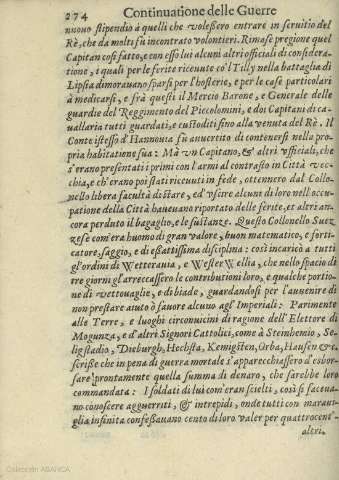 274 Continuatione delle Guerre
nuovo stipendio à quelli che volessero entrare in seruitio del
Rè, che da molti fù incontrato volontieri. Rimase pregione quel
Capitan così fatto, e con esso lui alcuni altri officiali di considera-
tione, i quali per le ferite riceuute co'l Tilly nella battaglia di
Lipsia dimorauano sparsi per l'hosterie, e per le case particolari
à medicarsi, e frà questi il Mercio Barone, e Generale delle
guardie del Reggimento del Piccolomini, e doi Capitani di ca-
uallaria tutti guardati, e custoditi sino alla venuta del Rè. Il
Conte istesso d'Hannouia fù auuertito di contenersi nella pro-
pria habitatione sua: Mà vn Capitano, & altri vfficiali, che
s'erano presentati i primi con l'armi al contrasto in Città vec-
chia, e ch'erano poi stati riceuuti in fede, ottennero dal Collo-
nello libera facultà di stare, ed vscire alcuni di loro nell'occu-
patione della Città haueuano riportato delle ferite, et altri an-
cora perduto il bagaglio, e le sustanze. Questo Collonello Suez
zese com'era huomo di gran valore, buon matematico, e forti-
catore, saggio, e di esattissima disciplina: così incaricò a tutti
gl'ordini di Wetterauia, e Wester Wellia, che nello spacio di
tre giorni gl'arreccassero le contributioni loro, e qualche portio-
ne di vettouaglie, e di biade, guardandosi per l'auuenire di
non prestare aiuto ò fauore alcuno agl'Imperiali: Parimente
alle Terre, e luoghi circonuicini di ragione dell'Elettore di
Mogunza, e d'altri Signori Cattolici, come à Steinhemio, Se-
ligstadio, Dieburgh, Hechsta, Kemigsten, Orba, Hausen &c.
scrisse che in pena di guerra mortale s'apparecchiassero al esbor-
sare prontamente quella summa di denaro, che sarebbe loro
commandata: I soldati di lui com'eran scielti, così si faceua-
no conoscere agguerriti, & intrepidi, onde tutti con maraui-
glia infinita confessauano cento di loro valer per quattrocent'
altri.
Colección ABANCA